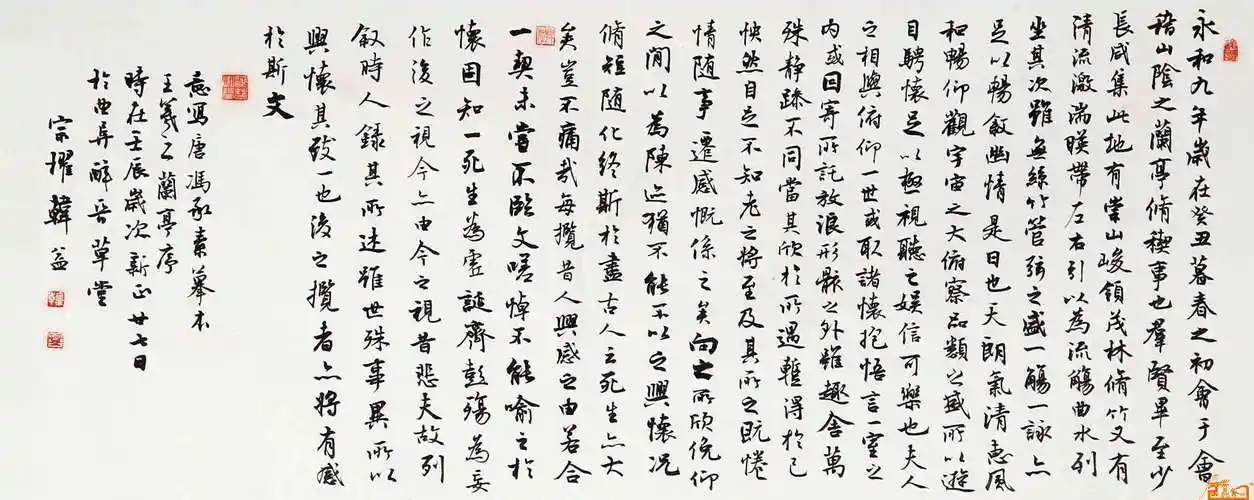 永和九年歲在癸丑暮春之初會于會
稽山陰之蘭亭脩稧事也羣賢畢至少
長咸集此地有崇山峻領茂林脩竹又有
清流激湍暎帶左右引以為流觴曲水列
坐其次雖無絲竹管弦之盛一觴一詠亦
足以暢敘幽情是日也天朗氣清惠風
和暢仰觀宇宙之大俯察品類之盛所以遊
目騁懷足以極視聽之娛信可樂也夫人
之相與俯仰一世或取諸懷抱悟言一室之
內或因寄所託放浪形骸之外雖趣舍萬
殊靜躁不同當其欣於所遇蹔得於己
怏然自足不知老之將至及其所之既惓
情隨事遷感慨係之矣向之所欣俛仰
之閒以為陳迹猶不能不以之興懷況
脩短隨化終斯於盡古人云死生亦大
矣豈不痛哉每攬昔人興感之由若合
一契未嘗不臨文嗟悼不能喻之於
懷固知一死生為虛誕齊彭殤為妄
作後之視今亦由今之視昔悲夫故列
敘時人錄其所述雖世殊事異所以
興懷其致一也後之攬者亦將有感
於斯文
意寫唐馮承素摹本
王羲之蘭亭序
時在壬辰歲次新正廿七日
於曲阜醉晉草堂
宗耀韓益